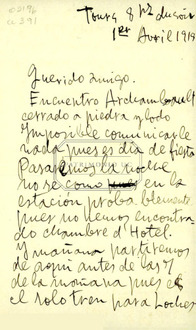 Tours 8 hrs du soir
1er Avril 1919
Querido amigo.
Encuentro Archambault
cerrado a piedra y lodo
Imposible comunicarle
nada pues es dia de fiesta
Pasaremos la noche
no se como en la
estación probablemente
pues no hemos encontra
do chambre d'Hotel.
Y mañana partiremos
de aqui antes de las 7
de la mañana pues es
el solo tren para Loches